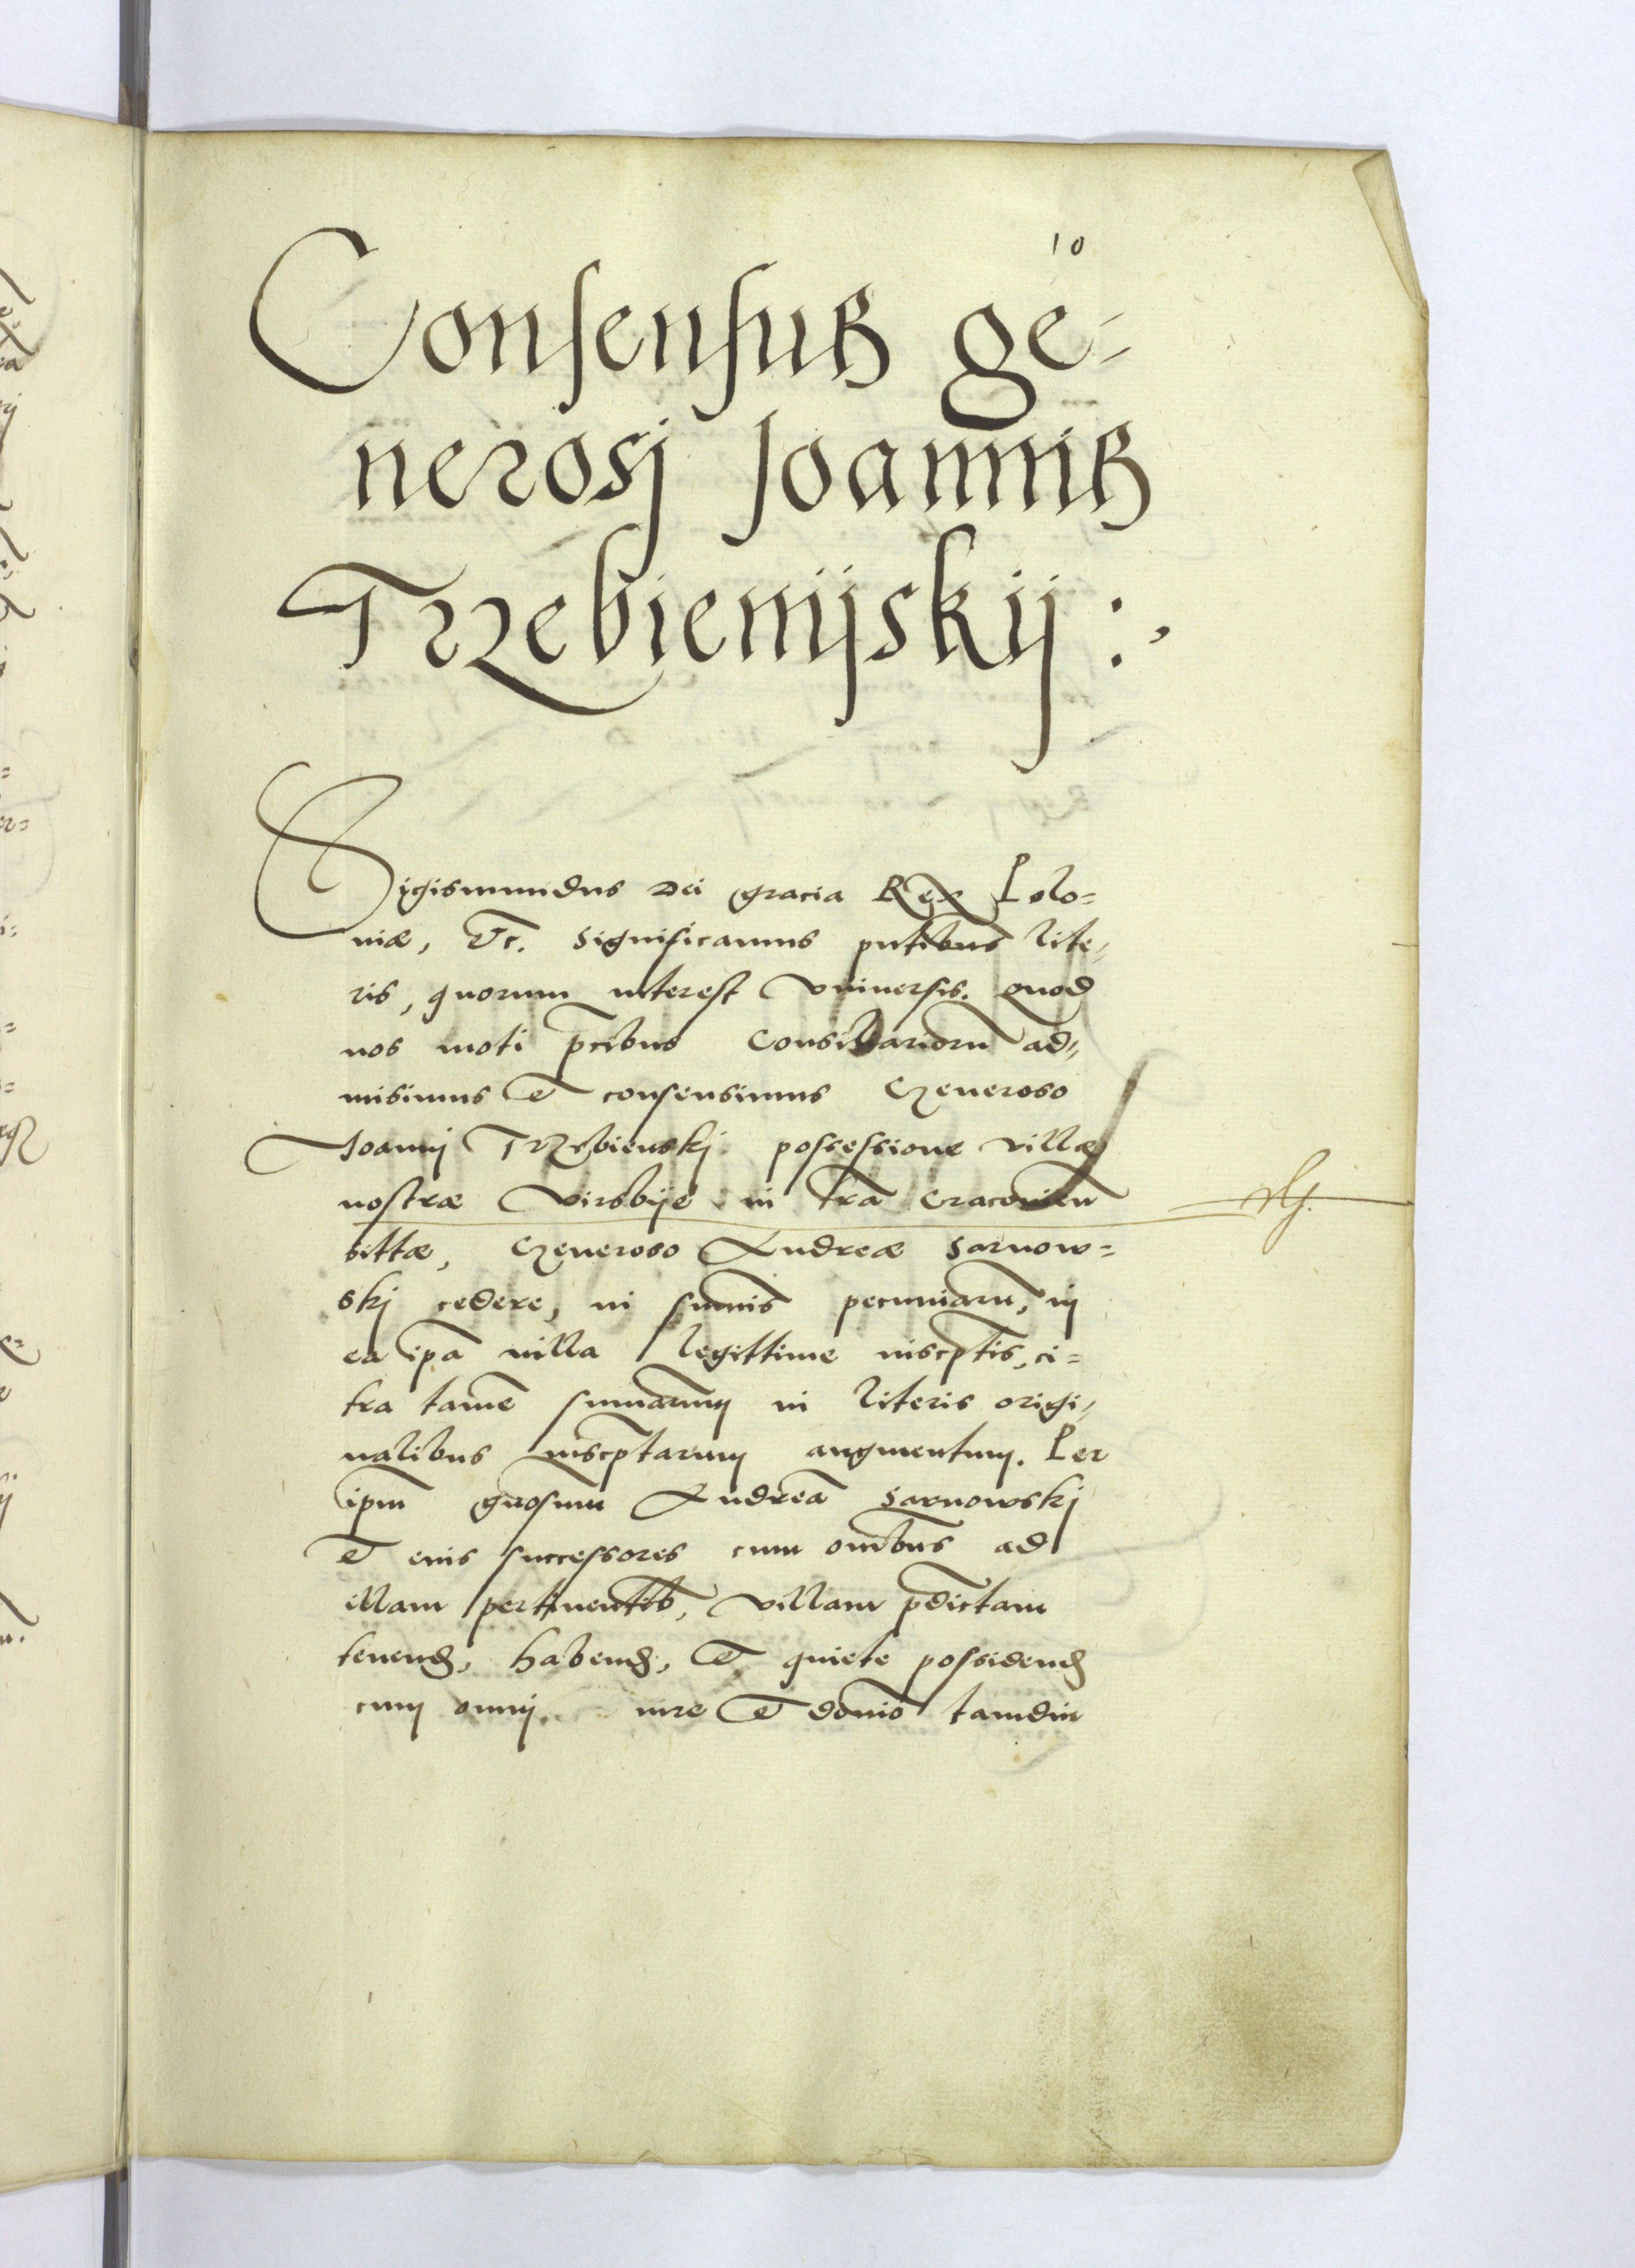 10
Consensus ge-
nerosj Joannis
Trzebienijskij :
Sigismundus Dei gracia Rex Polo=
niæ, &c. Significamus pñtibus lite,
ris, quorum interest vniuersis. Quod
nos moti p̃cibus Consiliariorũ ad,,
misimus et consensimus Generoso
Joannj Trzebienskj possessione villæ
nostræ Virsbije in tr̃a Cracovieñ
sittæ, Generoso Andreæ Sarnow=
skj cedere, in sum̃is pecuniarũ, in
ea ip̃a uilla legittime inscp̃tis, ci=
tra tamẽ sum̃arum in literis origi,
nalibus inscp̃tarum augmentum. Per
ipm̃ gños̃um Andreã Sarnowskj
et eius successores cum om̃ibus ad
illam pertinentib, villam p̃dictam
tenend, habend, et quiete possidend
cum omnj iure et dom̃io tamdiu